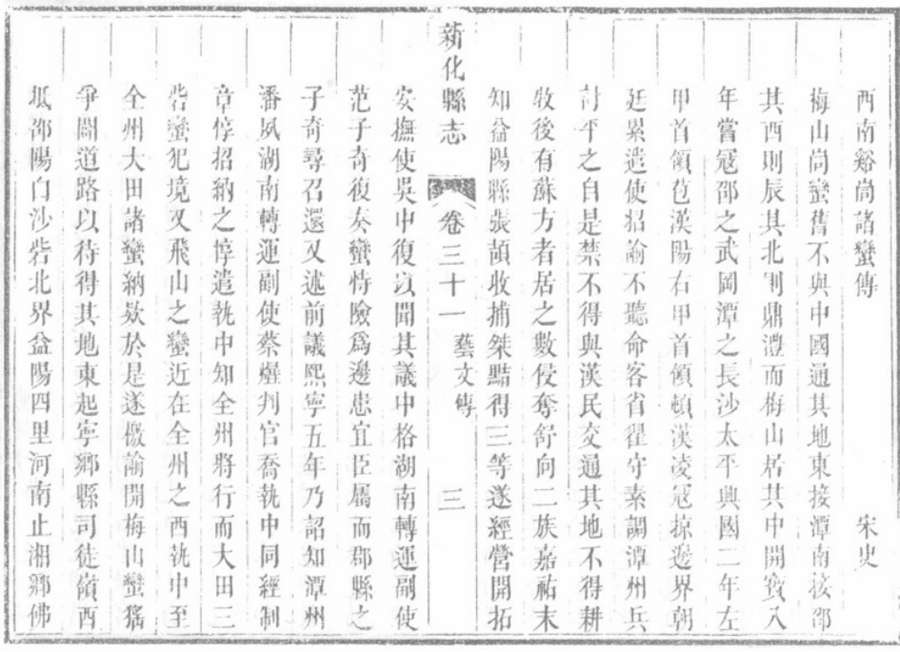 西南谿峝諸蠻傳 宋史
梅山峝蠻舊不與中國通其地東接潭南接邵
其西則辰其北則鼎澧而梅山居其中開寶八
年嘗冦邵之武岡潭之長沙太平興國二年左
甲首領苞漢陽右甲首領頓漢凌冦掠邊界朝
廷累遣使招諭不聽命客省翟守素調潭州兵
討平之自是禁不得與漢民交通其地不得耕
牧後有蘇方者居之數侵奪舒向二族嘉祐末
知益陽縣張頡收捕桀黠得三等遂經營開拓
新化縣志 卷三十一 藝文傳 三
安撫使吳中復以聞其議中格湖南轉運副使
范子奇復奏蠻恃險爲邊患宜臣屬而郡縣之
子奇尋召還又述前議熙寧五年乃詔知潭州
潘夙湖南轉運副使蔡燁判官喬執中同經制
章惇招納之惇遣執中知全州將行而大田三
砦蠻犯境又飛山之蠻近在全州之西執中至
全州大田諸蠻納欵於是遂檄諭開梅山蠻猺
爭闢道路以待得其地東起寧鄉縣司徒嶺西
坻邵陽白沙砦北界益陽四里河南止湘鄉佛